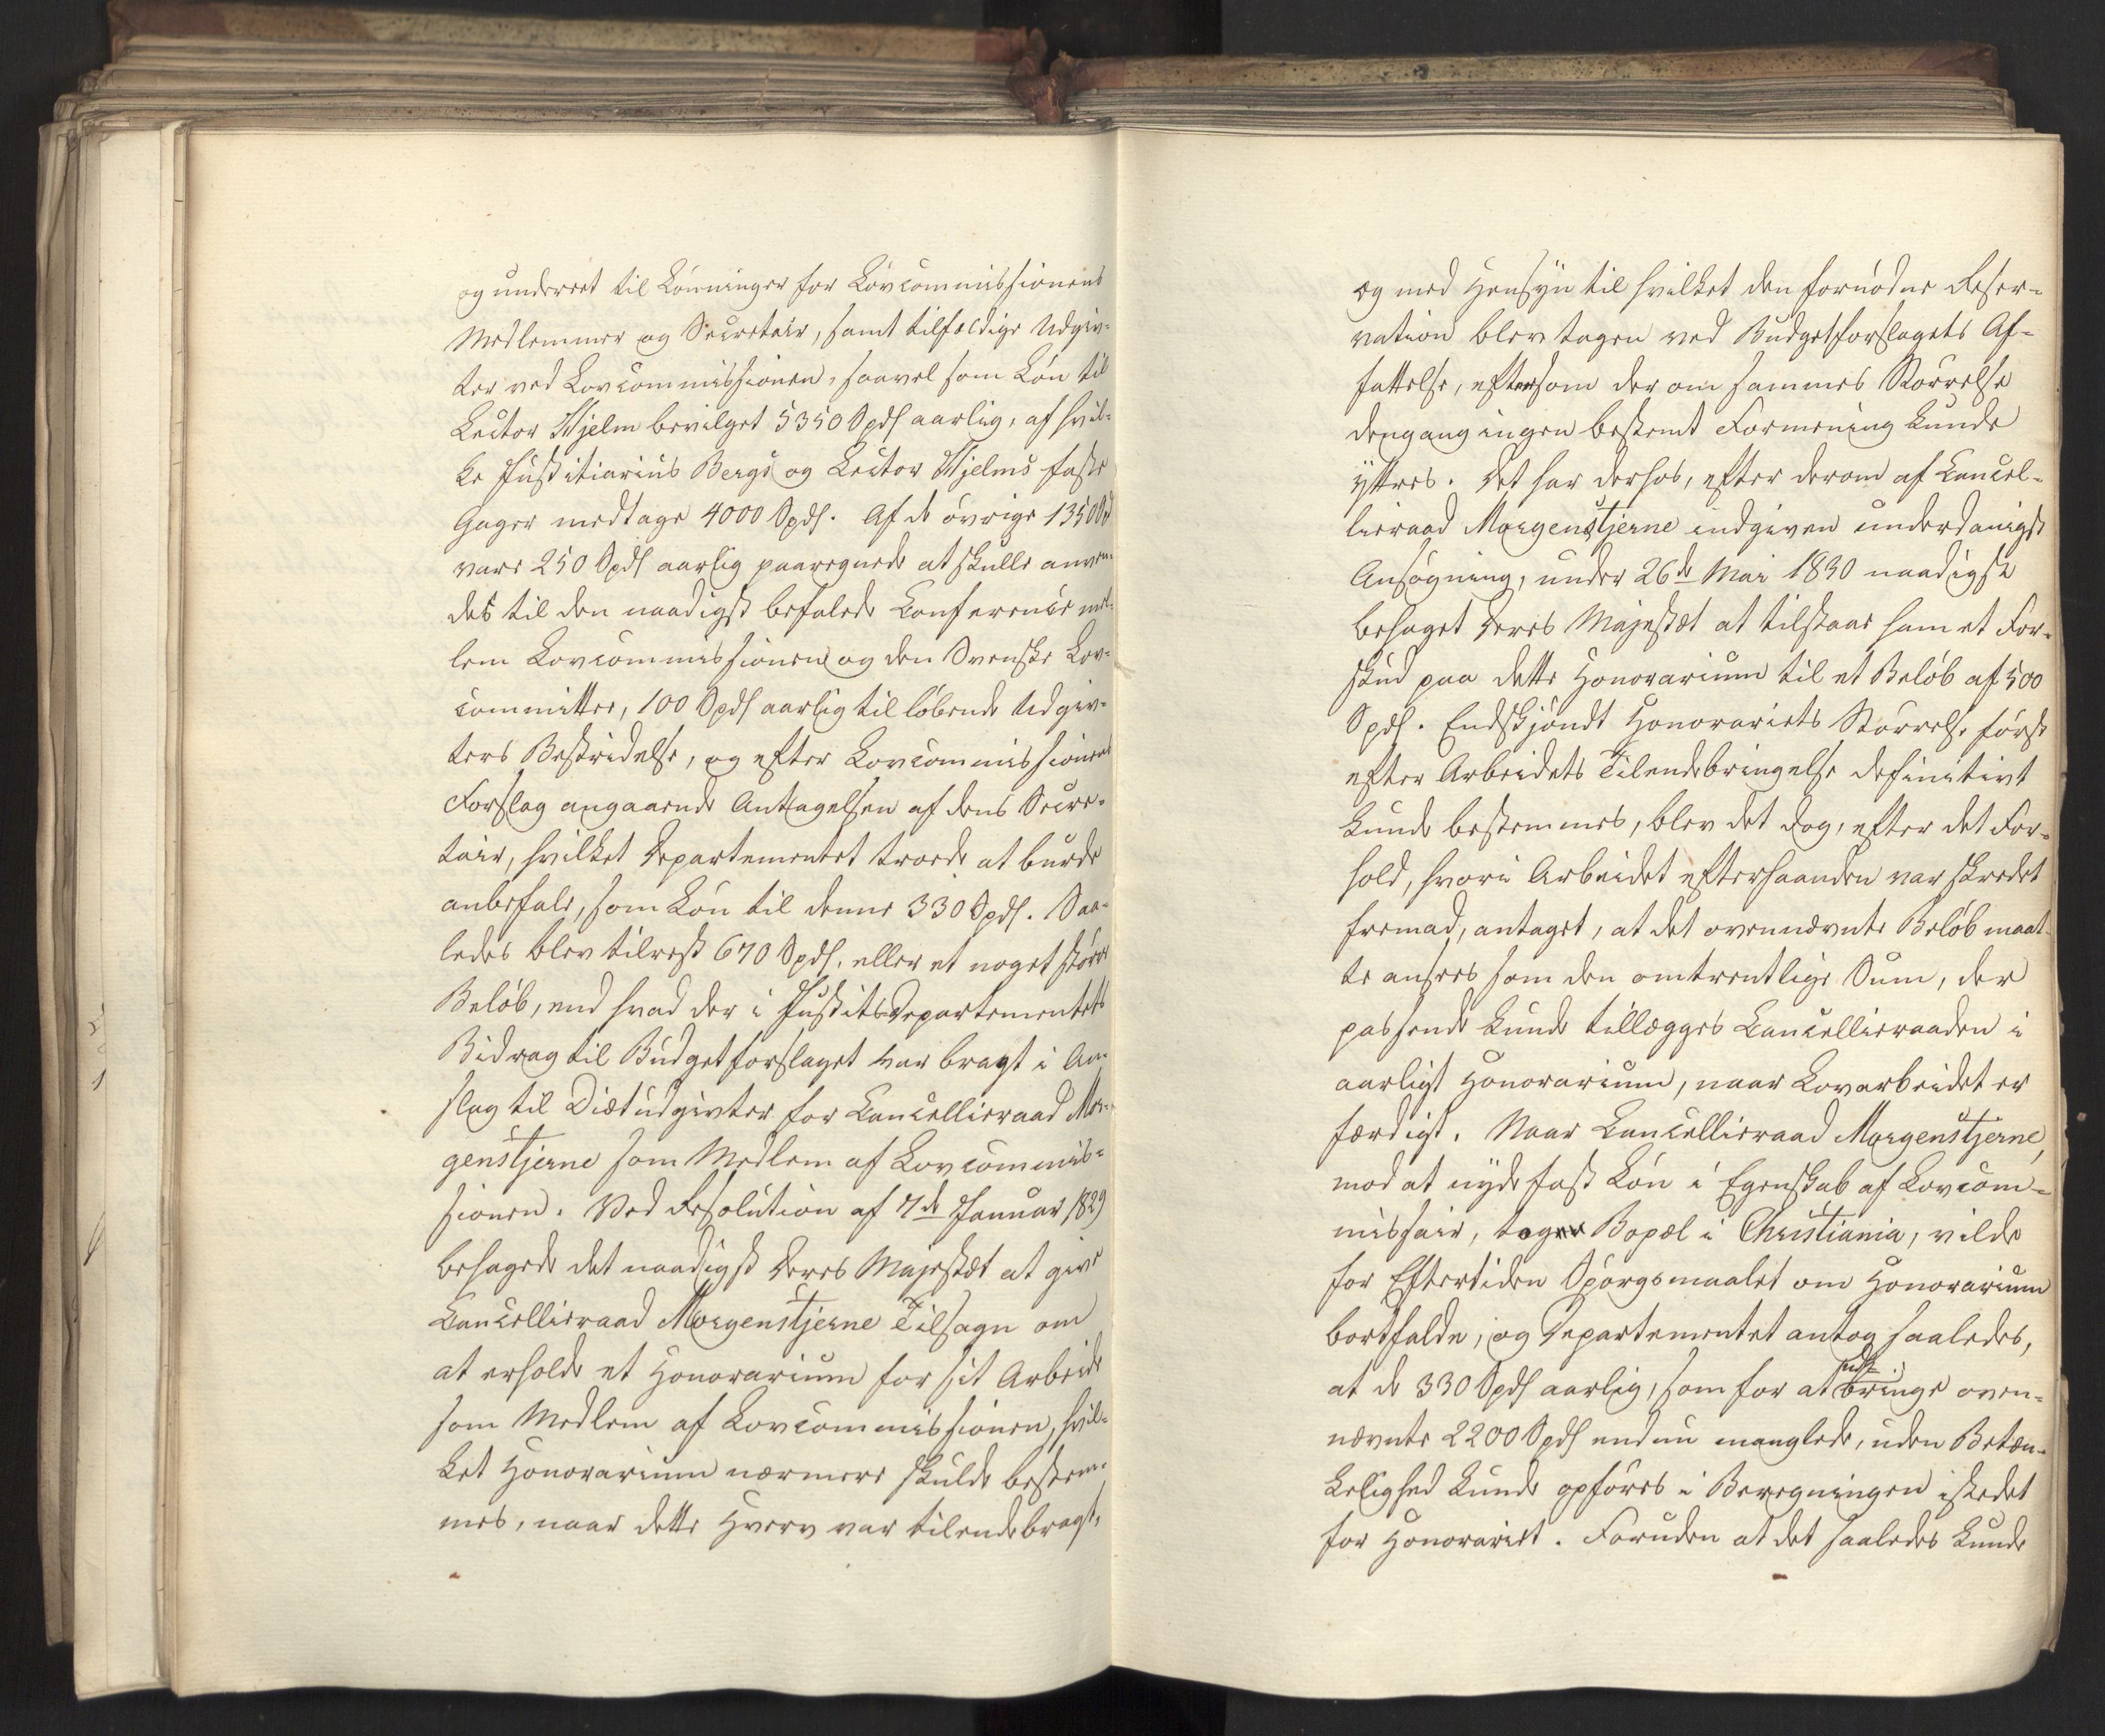 og underret til Lønninger for Lovcommissionens
Medlemmer og Secretair, samt tilfældige Udgiv-
ter ved Lovcommissionen, saavel som Løn til
Lector Hjelm bevilget 5350 Spdl aarlig, af hvil-
ke Justitiarius Bergs og Lector Hjelms faste
Gager medtage 4000 Spdl. Af de øvrige 1350 Spd
vare 250 Spdl aarlig paaregnede at skulle anven-
des til den naadigst befalede Conference mel-
lem Lovcommissionen og den Svenske Lov-
committee, 100 Spdl aarlig til løbende Udgiv-
ters Bestridelse, og efter Lovcommissionens
Forslag angaaende Antagelsen af dens Secre-
tair, hvilket Departementet troede at burde
anbefale, som Løn til denne 330 Spdl. Saa-
ledes blev tilrest 670 Spdl, eller et noget større
Beløb, end hvad der i JustitsDepartementets
Bidrag til Budgetforslaget var bragt i An-
slag til Diætudgivter for Cancellieraad Mor-
genstjerne som Medlem af Lovcommis-
sionen. Ved Resolution af 7de Januar 1829
behagede det naadigst Deres Majestæt at give
Cancellieraad Morgenstjerne Tilsagn om
at erholde et Honorarium for sit Arbeide
som Medlem af Lovcommissionen, hvil-
ket Honorarium nærmere skulde bestem-
mes, naar dette Hverv var tilendebragt,
og med Hensyn til hvilket den fornødne Reser-
vation blev tagen ved Budgetforslagets Af-
fattelse, eftersom der om sammes Størrelse
dengang ingen bestemt Formening kunde
yttres. Det har derhos, efter derom af Cancel-
lieraad Morgenstjerne indgiven underdanigst
Ansøgning, under 26de Mai 1830 naadigst
behaget Deres Majestæt at tilstaae ham et For-
skud paa dette Honorarium til et Beløb af 500
Spdl. Endskjøndt Honorariets Størrelse først
efter Arbeidets Tilendebringelse definitivt
kunde bestemmes, blev det dog, efter det For-
hold, hvori Arbeidet efterhaanden var skredet
fremad, antaget, at det ovennævnte Beløb maat-
te ansees som den omtrentlige Sum, der
passende kunde tillægges Cancellieraaden i
aarligt Honorarium, naar Lovarbeidet er
færdigt. Naar Cancellieraad Morgenstjerne,
mod at nyde fast Løn i Egenskab af Lovcom-
missair, tager Bopæl i Christiania, vilde
for Eftertiden Spørgsmaalet om Honorarium
bortfalde, og Departementet antog saaledes,
at de 330 Spdl aarlig, som for at udbringe oven-
nævnte 2200 Spdl endnu manglede, uden Betæn-
kelighed kunde opføres i Beregningen istedet
for Honorariet. Foruden at det saaledes kunde